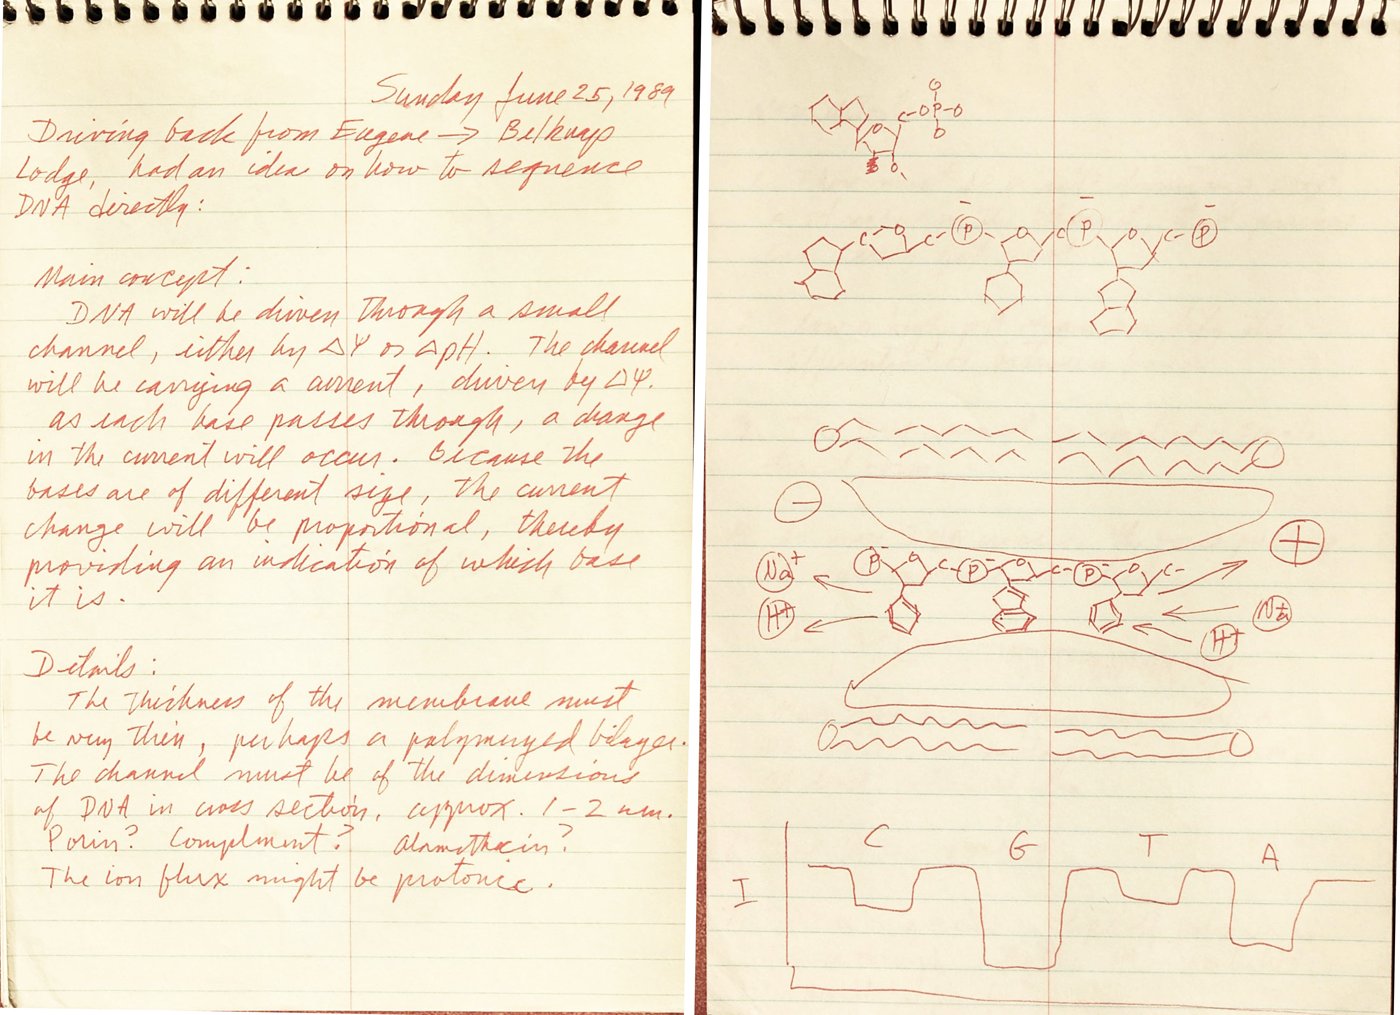 Sunday June 25, 1989
Driving back from Eugene → Belknap
Lodge, had an idea on how to sequence
DNA directly:
Main concept:
DNA will be driven through a small
channel, either by ΔΨ or ΔpH. The channel
will be carrying a current, driven by ΔΨ.
As each base passes through, a change
in the current will occur. Because the
bases are of different size, the current
change will be proportional, thereby
providing an indication of which base
it is.
Details:
The thickness of the membrane must
be very thin, perhaps a polymerized bilayer.
The channel must be of the dimensions
of DNA in cross section, approx. 1-2 nm.
Porin? Compliment? Alamethicin?
The ion flux might be protonic.
O
C-O-P-O
O O
O
C O C- P - O C P - O C- P -
- +
Na+ P - O C- P - O C- P - O C-
H+ Na+
H+
C G T A
I